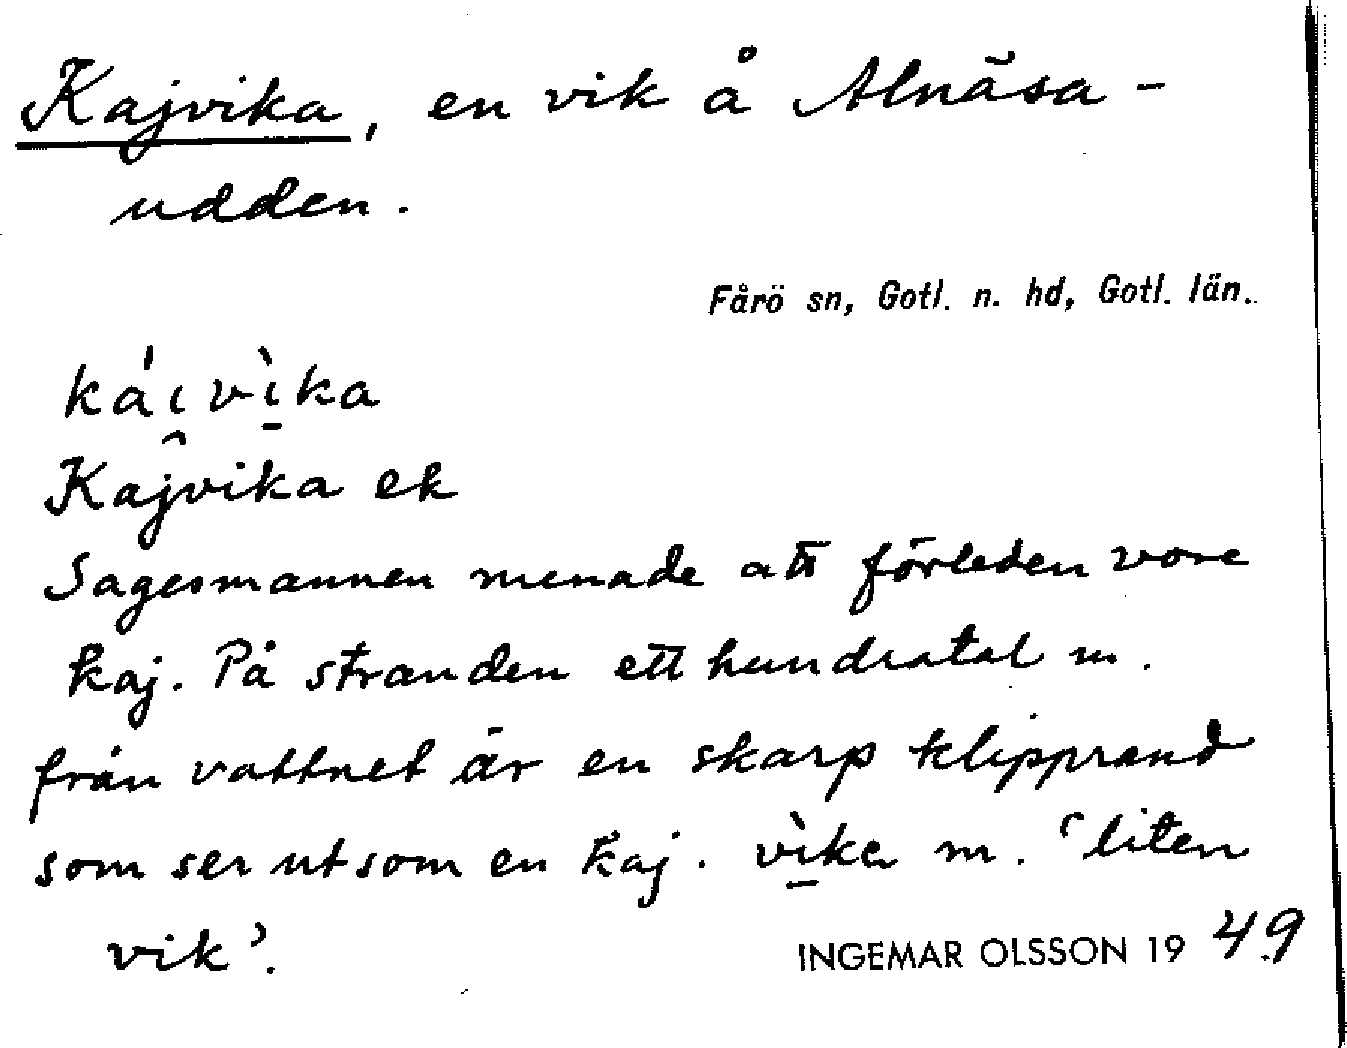 Kajvika, en vik å Alnäsa-
udden.
Fårö sn, Gotl. n. hd, Gotl. län.
ká'ı̯vì̱ka
Kajvika ek
Sagesmannen menade att förleden vore
kaj. På stranden ett hundratal m.
från vattnet är en skarp klipprand
som ser ut som en kaj. vì̱ka m. 'liten
vik'.
INGEMAR OLSSON 19 49